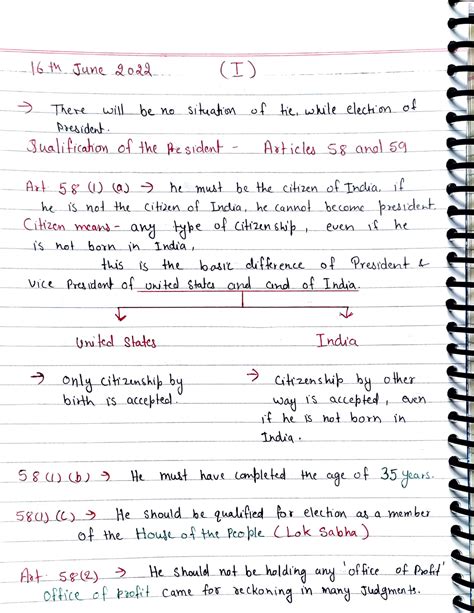 16th June 2022 (I)
→ There will be no situation of tie, while election of
President.
Qualification of the President - Articles 58 and 59
Art 58 (1) (a) → he must be the citizen of India, if
he is not the citizen of India, he cannot become president.
Citizen means - any type of citizenship, even if he
is not born in India,
this is the basic difference of President &
vice President of united states and and of India.
United States India
→ Only citizenship by
birth is accepted.
→ Citizenship by other
way is accepted, even
if he is not born in
India.
58(1) (b) → He must have completed the age of 35 years.
58(1) (C) → He should be qualified for election as a member
of the House of the People (Lok Sabha)
Art 58(2) → He should not be holding any 'office of Profit'
Office of profit came for reckoning in many Judgments.